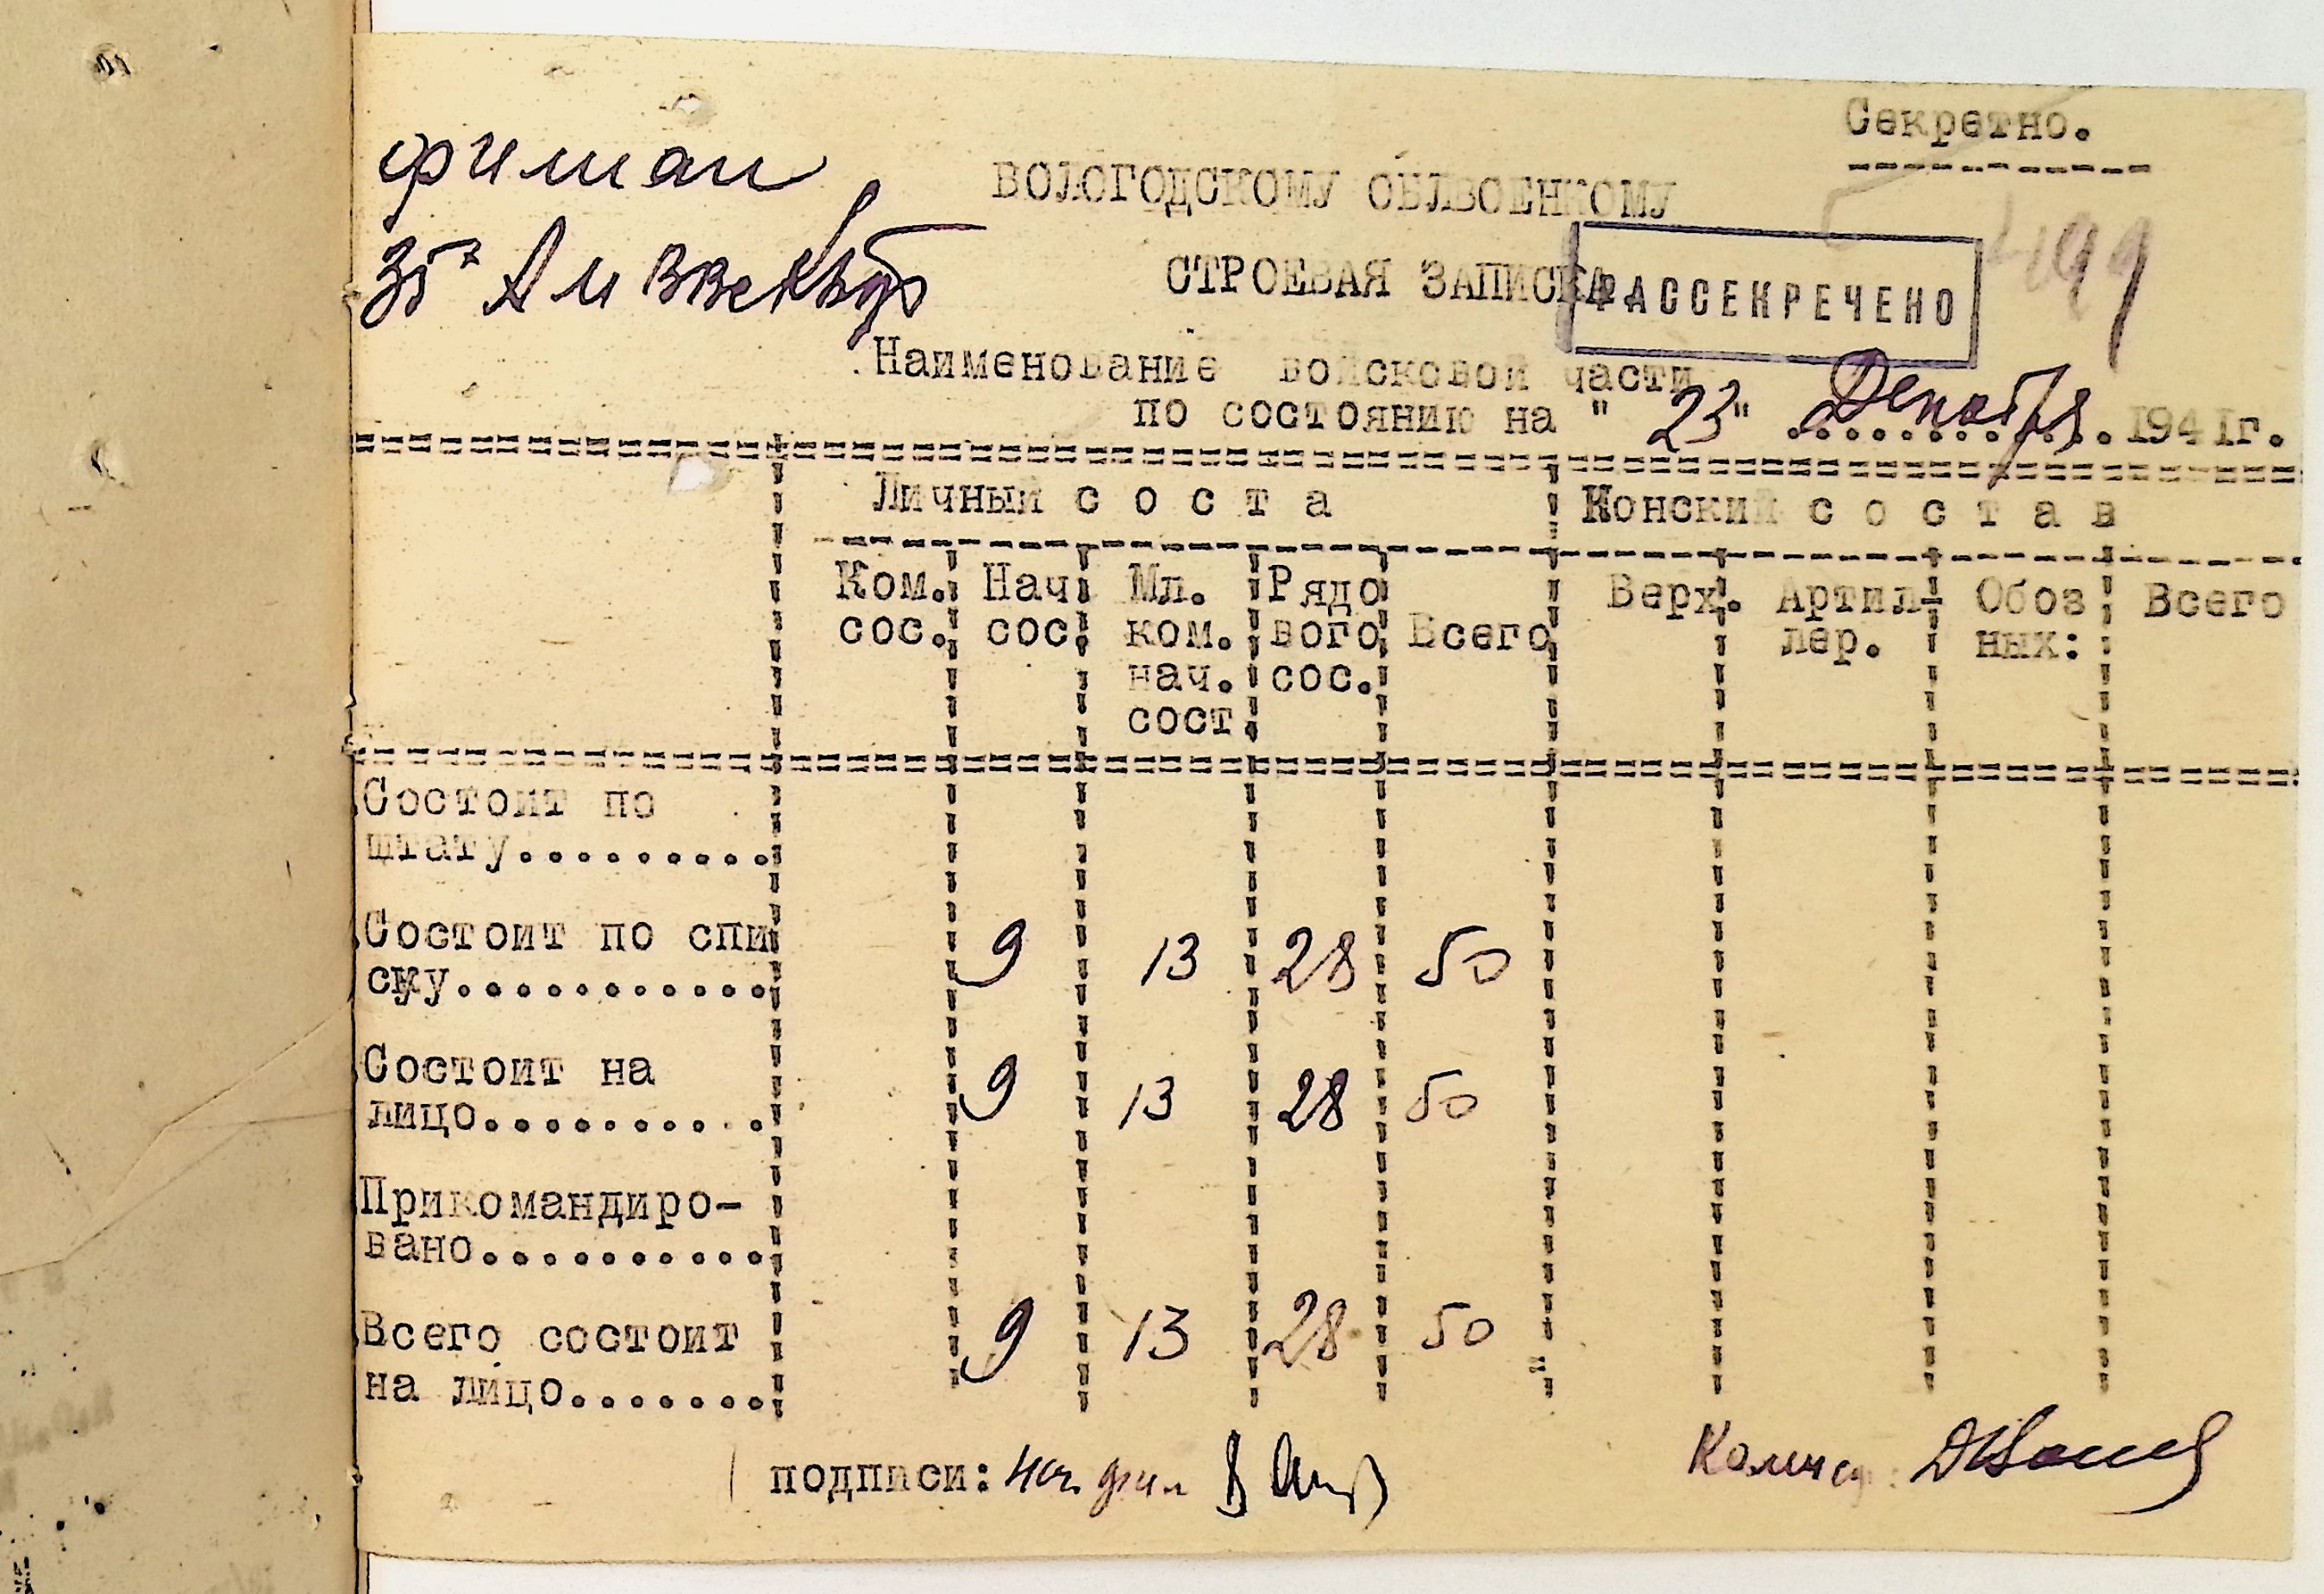 Секретно.
филиал
ВОЛОГОДСКОМУ ОБЛВОЕНКОМУ
499
СТРОЕВАЯ ЗАПИСКА
РАССЕКРЕЧЕНО
Наименование войсковой части
по состоянию на " 23" Декабря 1941г.
Личный с о с т а
Конский с о с т а в
Ком. Нач Мл. Рядо Верх. Артил- Обоз Всего
сос. сос. ком. вого Всего лер. ных:
нач. сос.
сост.
Состоит по
штату.........
Состоит по спи
ску........... 9 13 28 50
Состоит на
лицо.......... 9 13 28 50
Прикомандиро-
вано..........
Всего состоит 9 13 28 50
на лицо.......
подписи: нач. фил